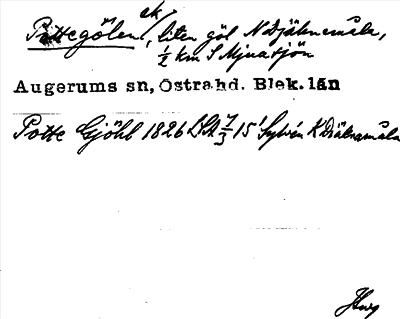 Pottegölen ek, liten göl N Djäknemåla,
½ km S Mjuasjön
Augerums sn, Östrahd. Blek.län
Potte Gjöhl 1826 LSA 7/3 15' Sylvén K Diäknamåla